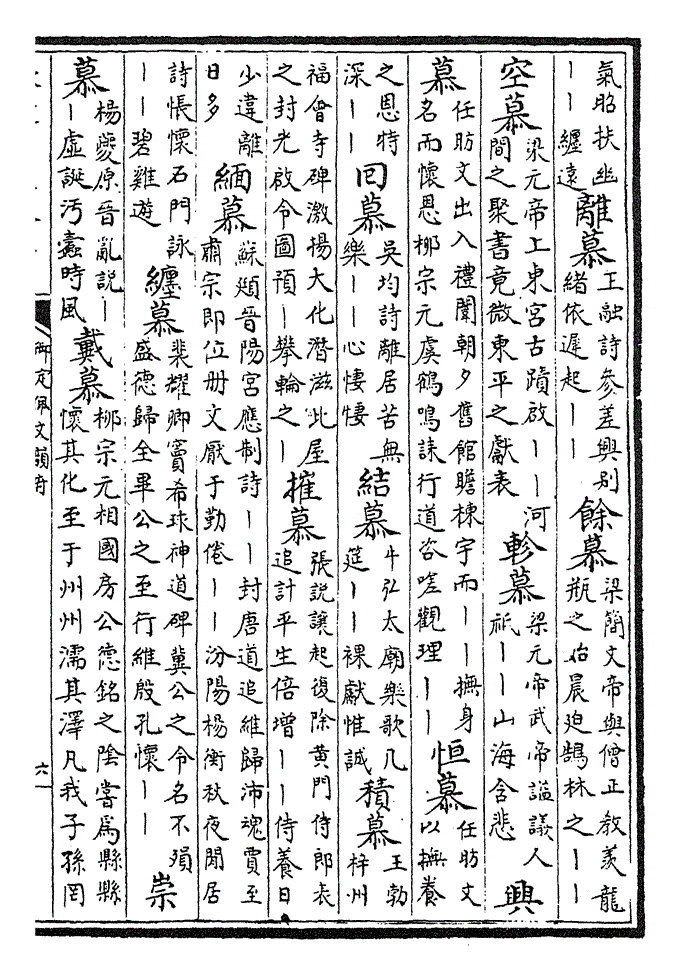 氣昭扶幽——纏遠離慕王融詩參差興别緒依遲起——餘慕梁簡文帝與僧正教羡龍瓶之始晨廹鵠林之——
空慕梁元帝上東宮古蹟啟——河間之聚書竟微東平之獻表軫慕梁元帝武帝諡議人祇——山海含悲興
慕任昉文出入禮闈朝夕舊館瞻棟宇而——撫身名而懷恩柳宗元虞鶴鳴誄行道咨嗟觀理——恒慕任昉文以撫養
之恩特深——回慕吳均詩離居苦無樂——心悽悽結慕牛弘太廟樂歌几筵——祼獻惟誠積慕王勃梓州
福會寺碑激揚大化潛滋比屋之封光啟令圖預—攀輪之—摧慕張說讓起復除黃門侍郎表追計平生倍增——侍養日
少違離日多緬慕蘇頲晉陽宮應制詩——封唐道追維歸沛魂賈至肅宗即位册文厭于勤倦——汾陽楊衡秋夜閒居
詩悵懷石門詠——碧雞遊纏慕裴耀卿竇希球神道碑冀公之令名不殞盛德歸全畢公之至行維殷孔懷——崇
慕楊夔原晉亂說——虛誕汚蠹時風戴慕柳宗元相國房公德銘之陰嘗爲縣縣懷其化至于州州濡其澤凡我子孫罔
御定佩文韻府
六一